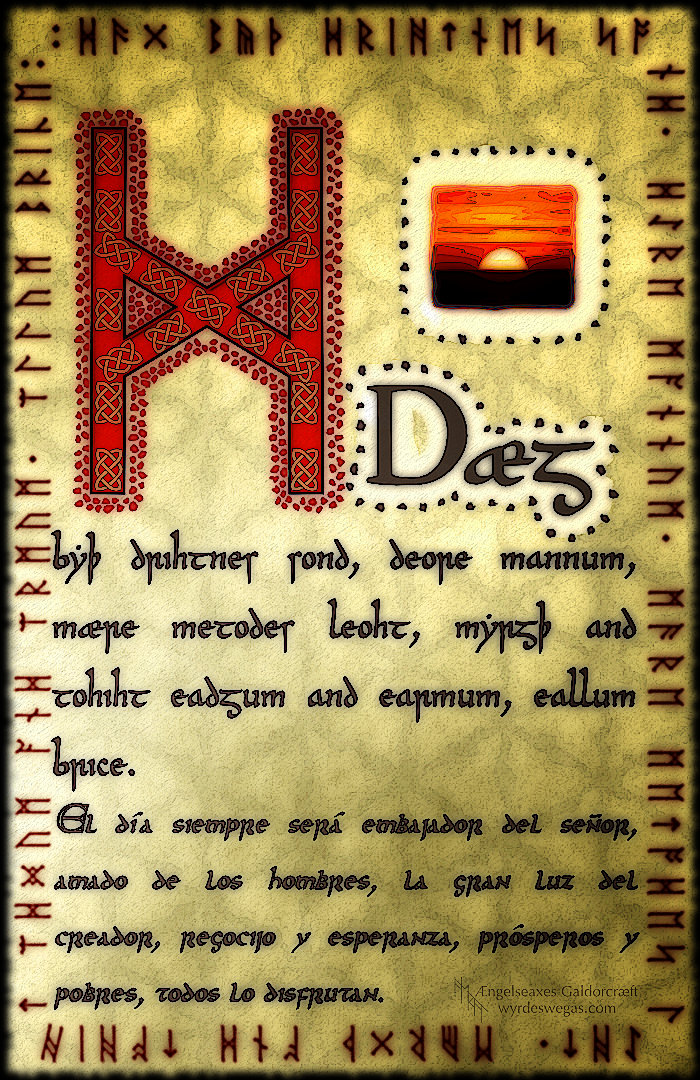 ᛬ᛞᚫᚷ ᛒᚣᚦ ᛞᚱᛁᚻᛏᚾᛖᛋ ᛋᚩ
Dæg
byþ drihtnes sond, deore mannum,
mære metodes leoht, myrgþ and
tohiht eadgum and earmum, eallum
brice.
El día siempre será embajador del señor,
amado de los hombres, la gran luz del
creador, regocijo y esperanza, prósperos y
pobres, todos lo disfrutan.
Ængelseaxes Galdorcræft
wyrdeswegas.com